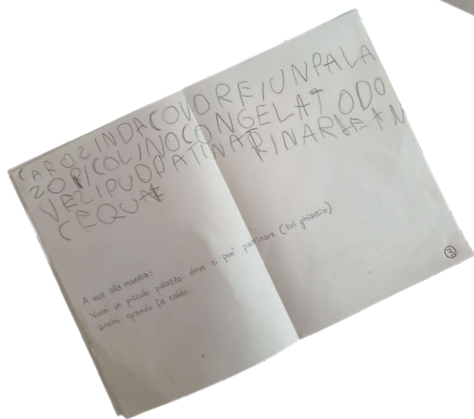 CAROSINDACOVOREIUNPALA
ZOPICOLINOCONGELATODO
VESIPUOPATINAR
CEQUA
A voce alla maestra:
Vorrei un piccolo palazzo dove si può pattinare (sul ghiaccio)
anche quando fa caldo.
3